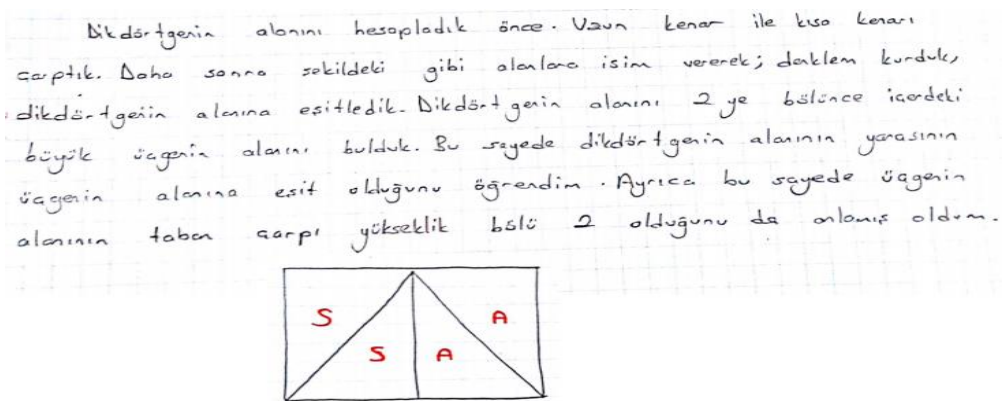 Dikdörtgenin alanını hesapladık önce. Uzun kenar ile kısa kenarı
çarptık. Daha sonra şekildeki gibi alanlara isim vererek; denklem kurduk,
dikdörtgenin alanına eşitledik. Dikdörtgenin alanını 2 ye bölünce içerdeki
büyük üçgenin alanını bulduk. Bu sayede dikdörtgenin alanının yarasının
üçgenin alanına eşit olduğunu öğrendim. Ayrıca bu sayede üçgenin
alanının taban çarpı yükseklik bölü 2 olduğunu da anlamış oldum.
S A
S A